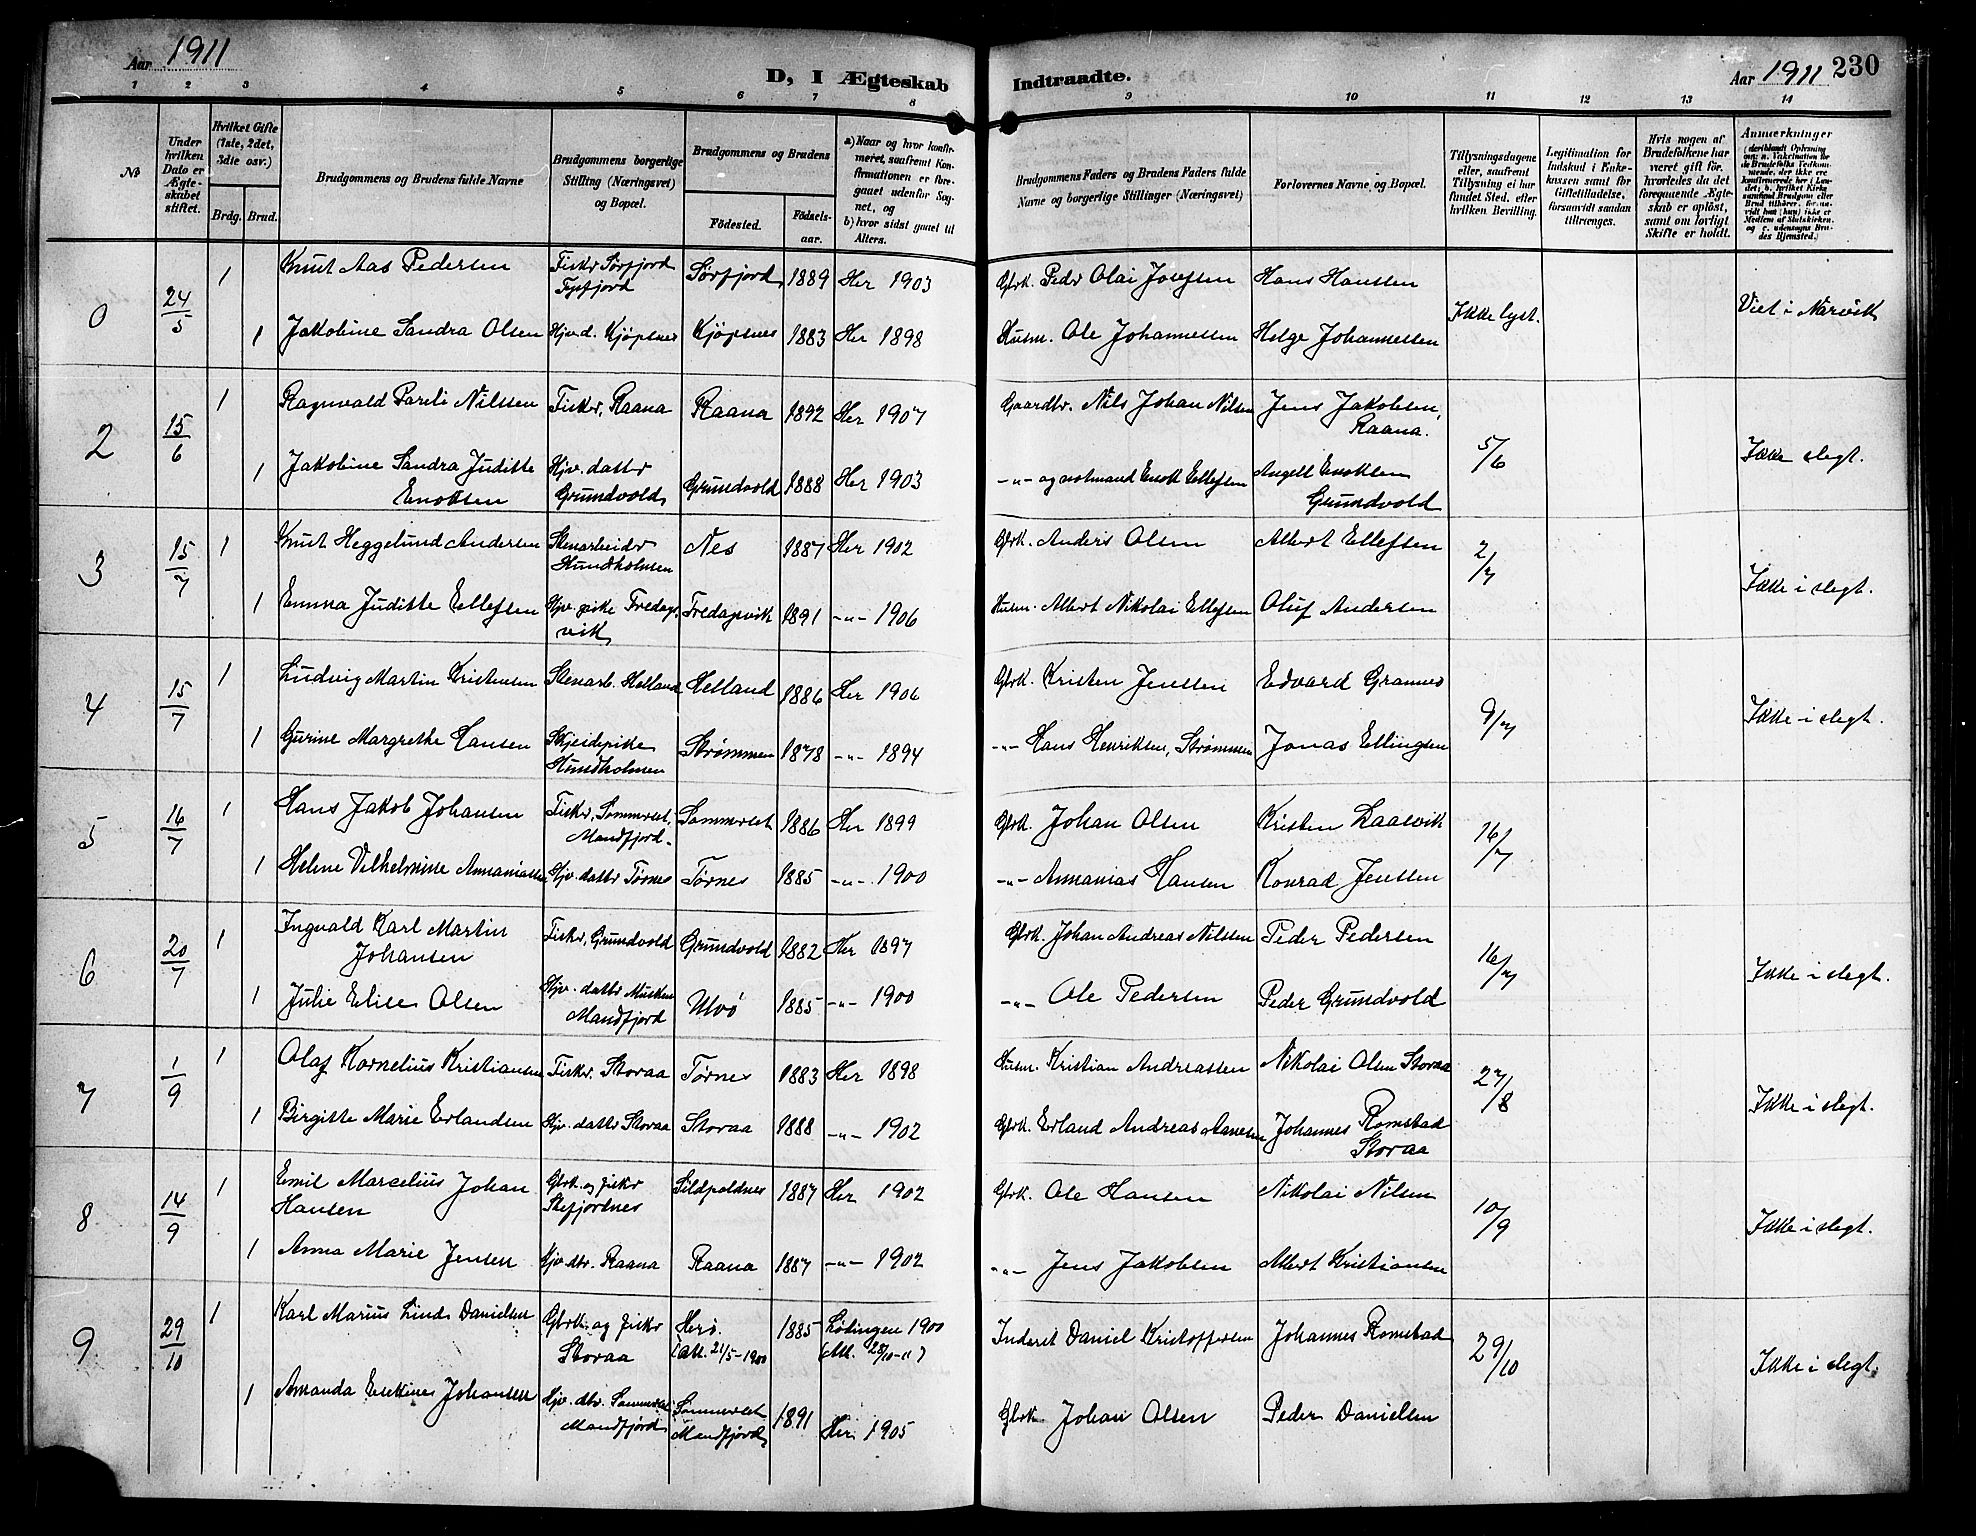 Aar 1911
D, I Ægteskab Indtraadte.
Aar 1911 230
1 2 3 4 5 6 7 8 9 10 11 12 13 14
No
Under hvilken Dato er Ægteskabet stiftet.
Hvilket Gifte (1ste, 2det, 3die osv.)
Brdg. Brud.
Brudgommens og Brudens fulde Navne
Brudgommens borgerlige Stilling (Næringsvei) og Bopæl.
Brudgommens og Brudens
Fødested. Fødselsaar.
a) Naar og hvor konfirmeret, saafremt Konfirmationen er foregaaet udenfor Sognet, og
b) hvor sidst gaaet til Alters.
Brudgommens Faders og Brudens Faders fulde Navne og borgerlige Stillinger (Næringsvei)
Forlovernes Navne og Bopæl.
Tillysningsdagene eller, saafremt Tillysning ei har fundet Sted, efter hvilken Bevilling.
Legitimation for Indskud i Enkekassen samt for Giftetilladelse, forsaavidt saadan tiltrænges.
Hvis nogen af Brudefolkene har været gift før, hvorledes da det foregaaende Ægteskab er opløst, samt om lovligt Skifte er holdt.
Anmærkninger
0 24/5 1 Knut Aas Pedersen Fisker Sørfjord Tysfjord Sørfjord 1889 Her 1903 Gbrk. Peder Olai Josefsen Hans Hanssen Ikke lyst. Viet i Narvik
1 Jakobine Sandra Olsen Hjv.d. Kjøpsnes Kjøpsnes 1883 Her 1898 Husm. Ole Johannessen Helge Johannessen
2 15/6 1 Ragnvald Pareli Nilssen Fisker, Raana Raana 1892 Her 1907 Gaardbr. Nils Johan Nilsen Jens Jakobsen, Raana. 5/6 Ikke slegt.
1 Jakobine Sandra Juditte Enoksen Hjv. datter Grundvold Grundvold 1888 Her 1903 -"- og notmand Enok Ellefsen Angell Enoksen Grundvold
3 15/7 1 Knut Heggelund Andersen Stenarbeider Hundholmen Nes 1887 Her 1902 Gbrk. Anders Olsen Albert Ellefsen 2/7 Ikke i slegt.
1 Emma Juditte Ellefsen Hjv. pike Fredagsvik Fredagsvik 1891 -"- 1906 Husm. Albert Nikolai Ellefsen Oluf Andersen
4 15/7 1 Ludvig Martin Kristensen Stenarb. Helland Helland 1886 Her 1906 Gbrk. Kristen Jenssen Edvard Grannes 9/7 Ikke i slegt.
1 Gurine Margrethe Hansen Skjeidepike Hundholmen Strømmen 1878 -"- 1894 -"- Hans Henriksen, Strømmen Jonas Ellingsen
5 16/7 1 Hans Jakob Johansen Fisker, Sommerset, Mandfjord. Sommerset 1886 Her 1899 Gbrk. Johan Olsen Kristen Laasvik 16/7
1 Helene Vilhelmine Annaniassen Hjv. datter Tørnes Tørnes 1885 -"- 1900 -"- Annanias Hansen Konrad Jenssen
6 20/7 1 Ingvald Karl Martin Johansen Fisker, Grundvold Grundvold 1882 Her 1897 Gbrk. Johan Andreas Nilssen Peder Pedersen 16/7 Ikke i slegt.
1 Julie Elise Olsen Hjv. datter Musken Mandfjord Ulvø 1885 -"- 1900 -"- Ole Pedersen Peder Grundvold
7 1/9 1 Olaf Kornelius Kristiansen Fisker. Storaa Tørnes 1883 Her 1898 Husm. Kristian Andreassen Nikolai Olsen Storaa 27/8 Ikke i slegt.
1 Birgitte Marie Erlandsen Hjv. datter Storaa Storaa 1888 -"- 1902 Gbrk. Erland Andreas Hansen Johannes Romstad Storaa
8 14/9 1 Emil Marcelius Johan Hansen Gbrk. og fisker Stefjordnes Sildpoldnes 1887 Her 1902 Gbrk. Ole Hansen Nikolai Nilsen 10/9 Ikke i slegt.
1 Anna Marie Jensen Hjv. dtr. Raana Raana 1887 -"- 1902 -"- Jens Jakobsen Albert Kristiansen
9 29/10 1 Karl Marius Lind Danielsen Gbrk. og fisker Storaa Herø. (Att. 21/5-1900 1885 Lødingen 1900 (Att. 25/10 -") Inderst Daniel Kristoffersen Johannes Romstad 29/10 Ikke i slegt.
1 Amanda Enokine Johansen Hjv. dtr. Sommerset Mandfjord Sommerset Mandfjord 1891 Her 1905 Gbrk. Johan Olsen Peder Danielsen